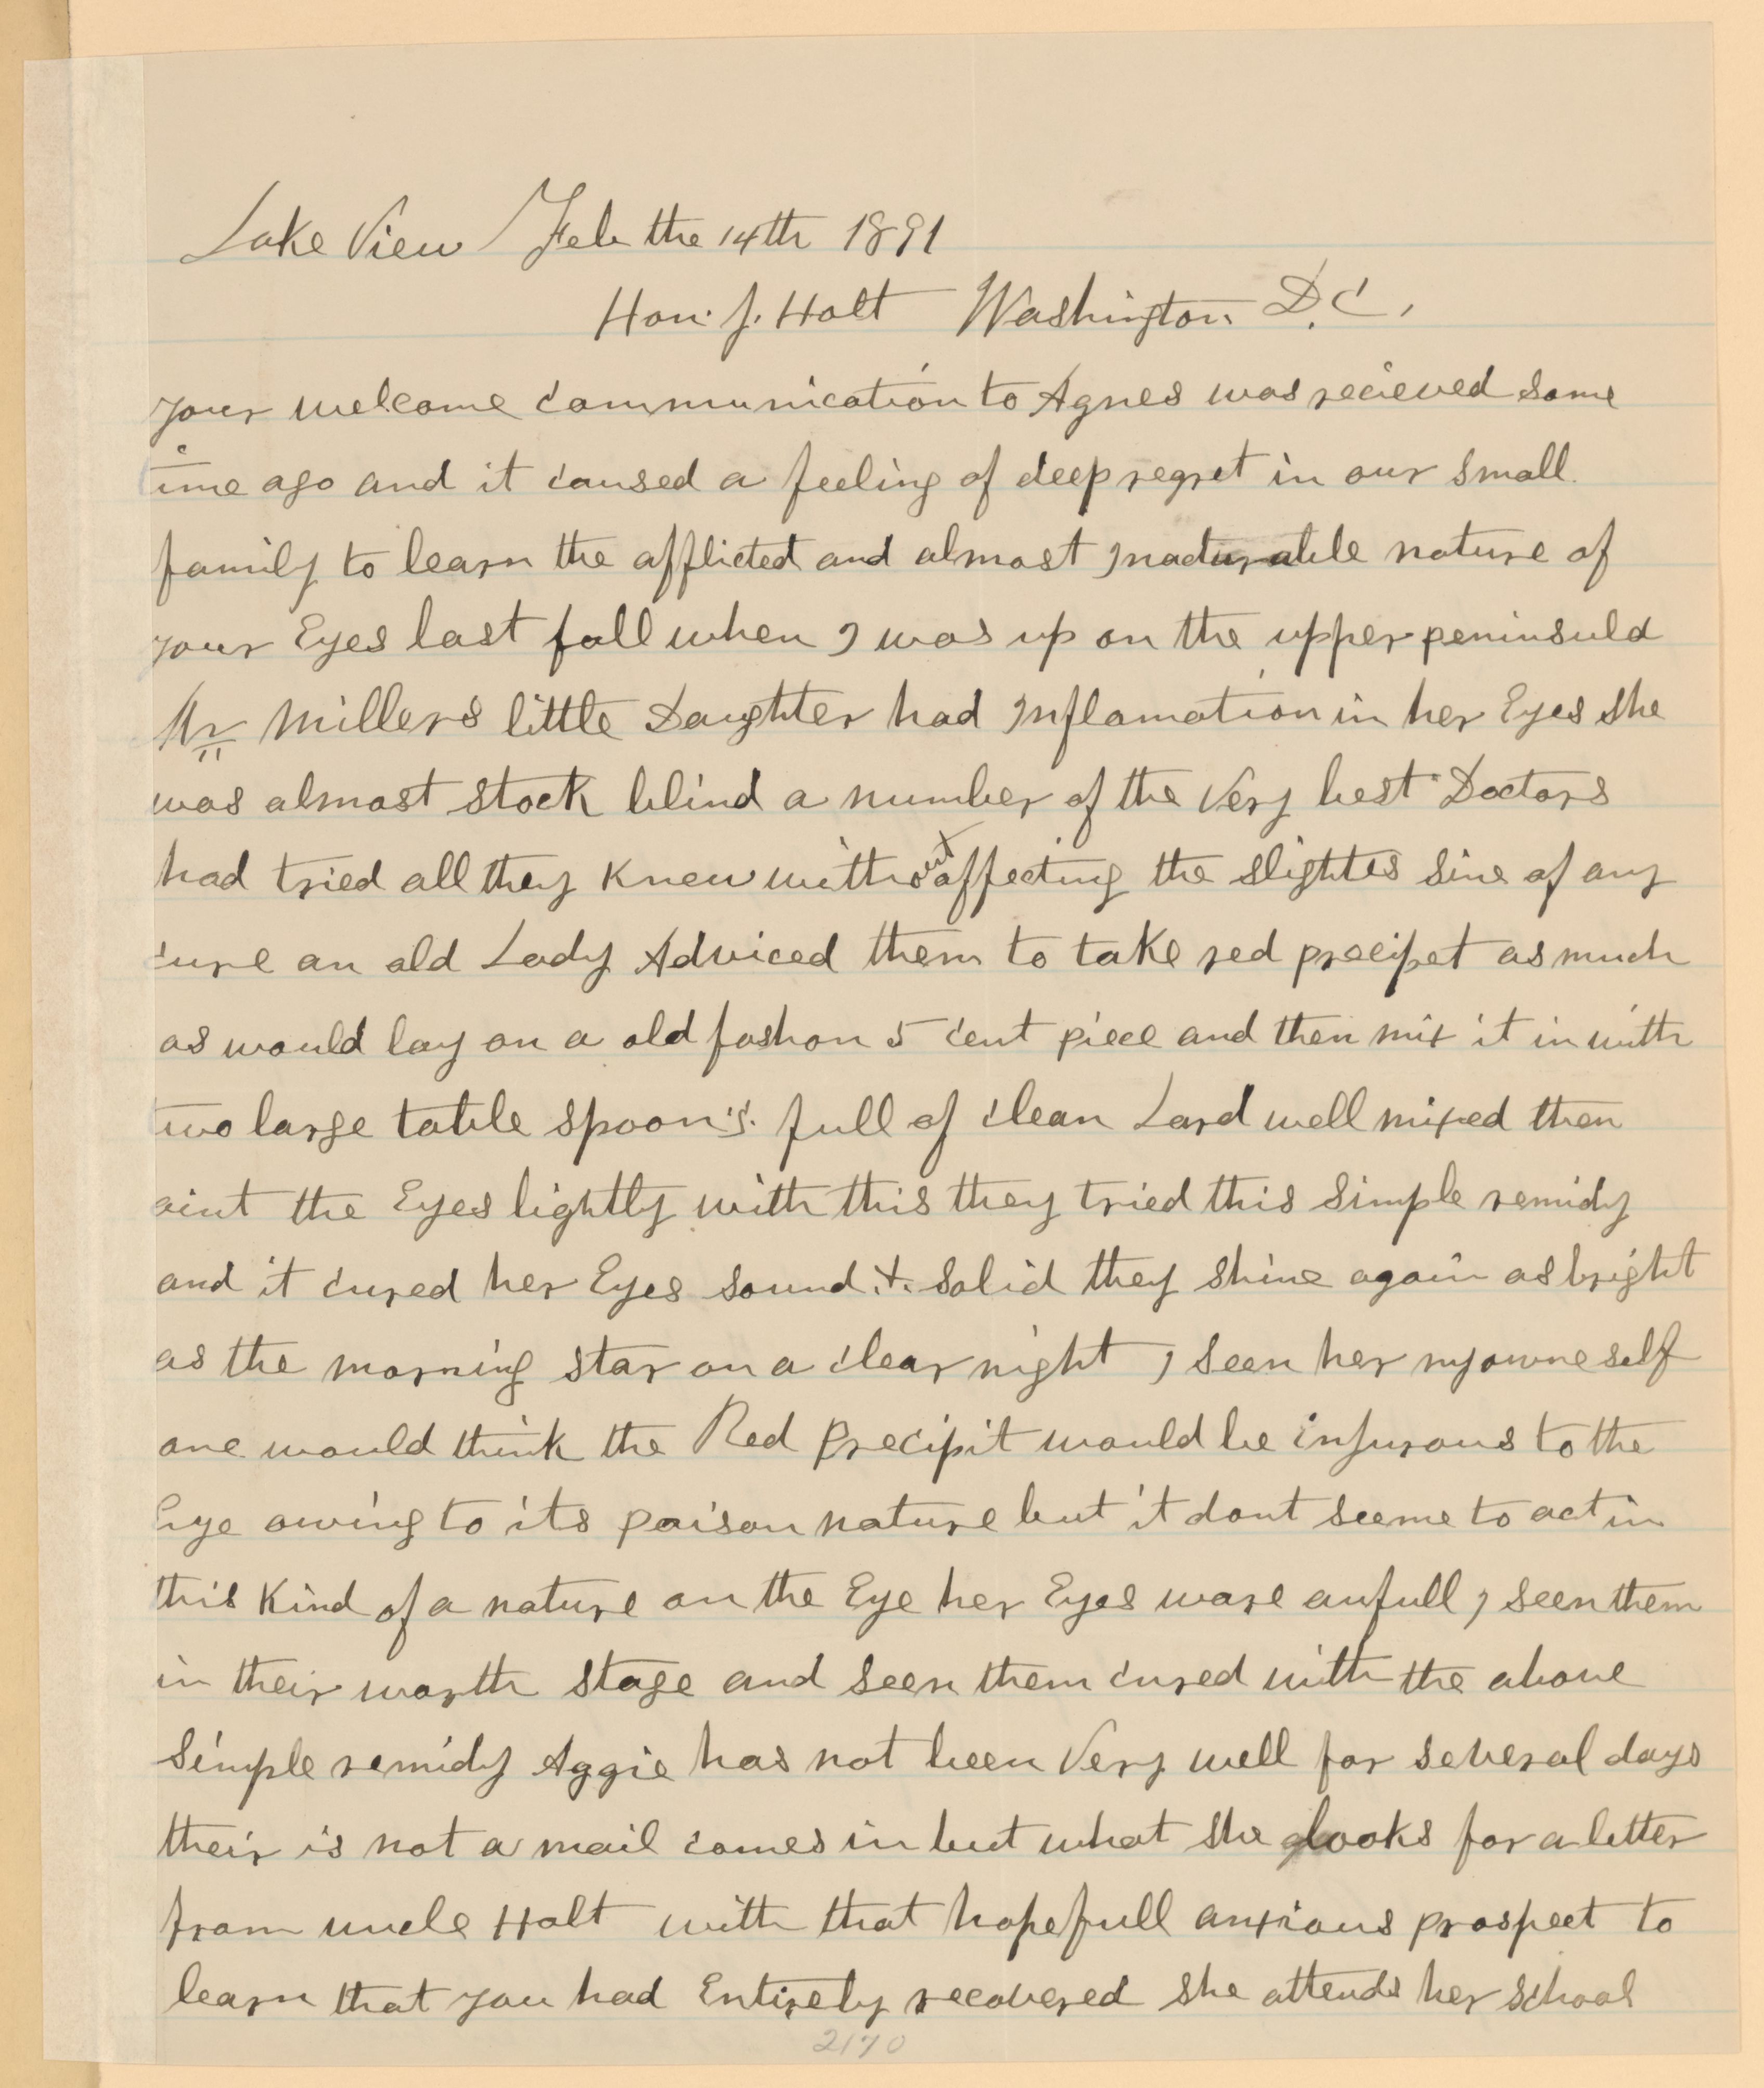 Lake View Feb the 14th 1891
Hon. J. Holt Washington D.C.
your welcome communication to Agnes was recieved some
time ago and it caused a feeling of deep regret in our small
family to learn the afflicted and almost nature of
your Eyes last fall when I was up on the upper peninsula
Mr Millers little Daughter had Inflamation in her Eyes she
was almost stock blind a number of the Very best Doctors
had tried all they knew without affecting the slightes sine of any
cure an old Lady Adviced them to take red precipet as much
as would lay on a old fashon 5 cent piece and then mix it in with
two large table spoon's full of clean Lard well mixed then
aint the Eyes lightly with this they tried this simple remidy
and it cured her Eyes sound & solid they shine again as bright
as the morning star on a clear night I seen her my owne self
one would think the Red Precipit would be injurous to the
Eye owing to its poison nature but it dont seeme to act in
this kind of a nature on the Eye her Eyes ware awfull I seen them
in their worth stage and seen them cured with the above
simple remidy Aggie has not been Very well for several days
their is not a mail comes in but what she looks for a letter
from uncle Holt with that hopefull anxious prospect to
learn that you had Entirely recovered she attends her school
2170